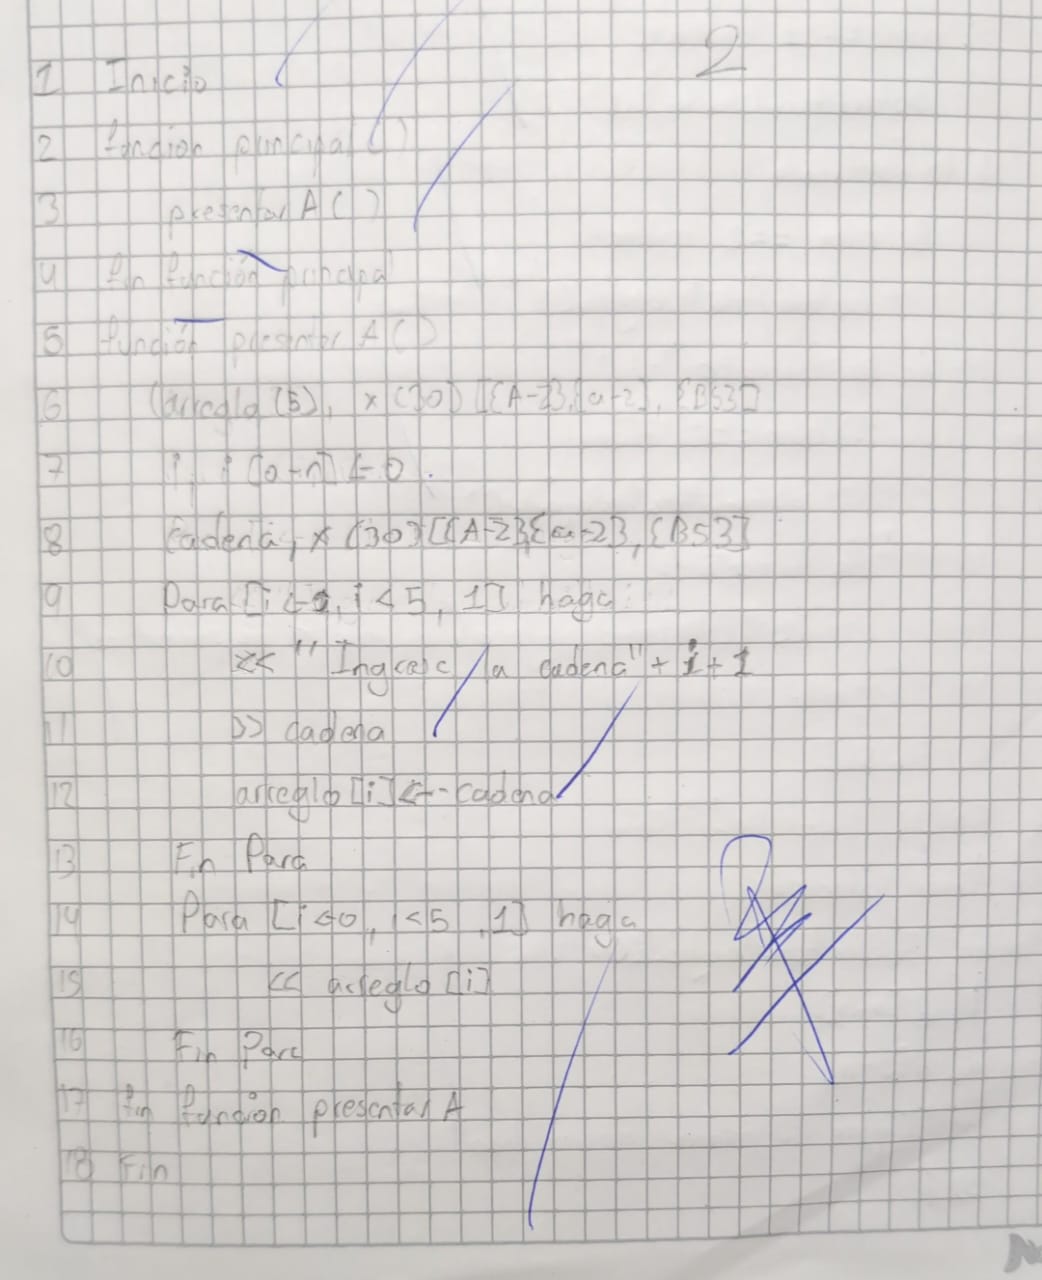 2
1 Inicio
2 función principal ( )
3 presentar A ( )
4 fin función principal
5 función presentar A ( )
6 (arreglo (5), x (30) [{A-Z},{a-z}, {B53}]
7 i, i [0-n] ← 0
8 Cadena, x (30) [{A-Z},{a-z}, {B53}]
9 Para [i ← 0, i < 5, 1] haga
10 << "Ingrese la cadena" + i + 1
11 >> cadena
12 arreglo [i] ← cadena
13 Fin Para
14 Para [i ← 0, i < 5, 1] haga
15 << arreglo [i]
16 Fin Para
17 fin función presentar A
18 Fin